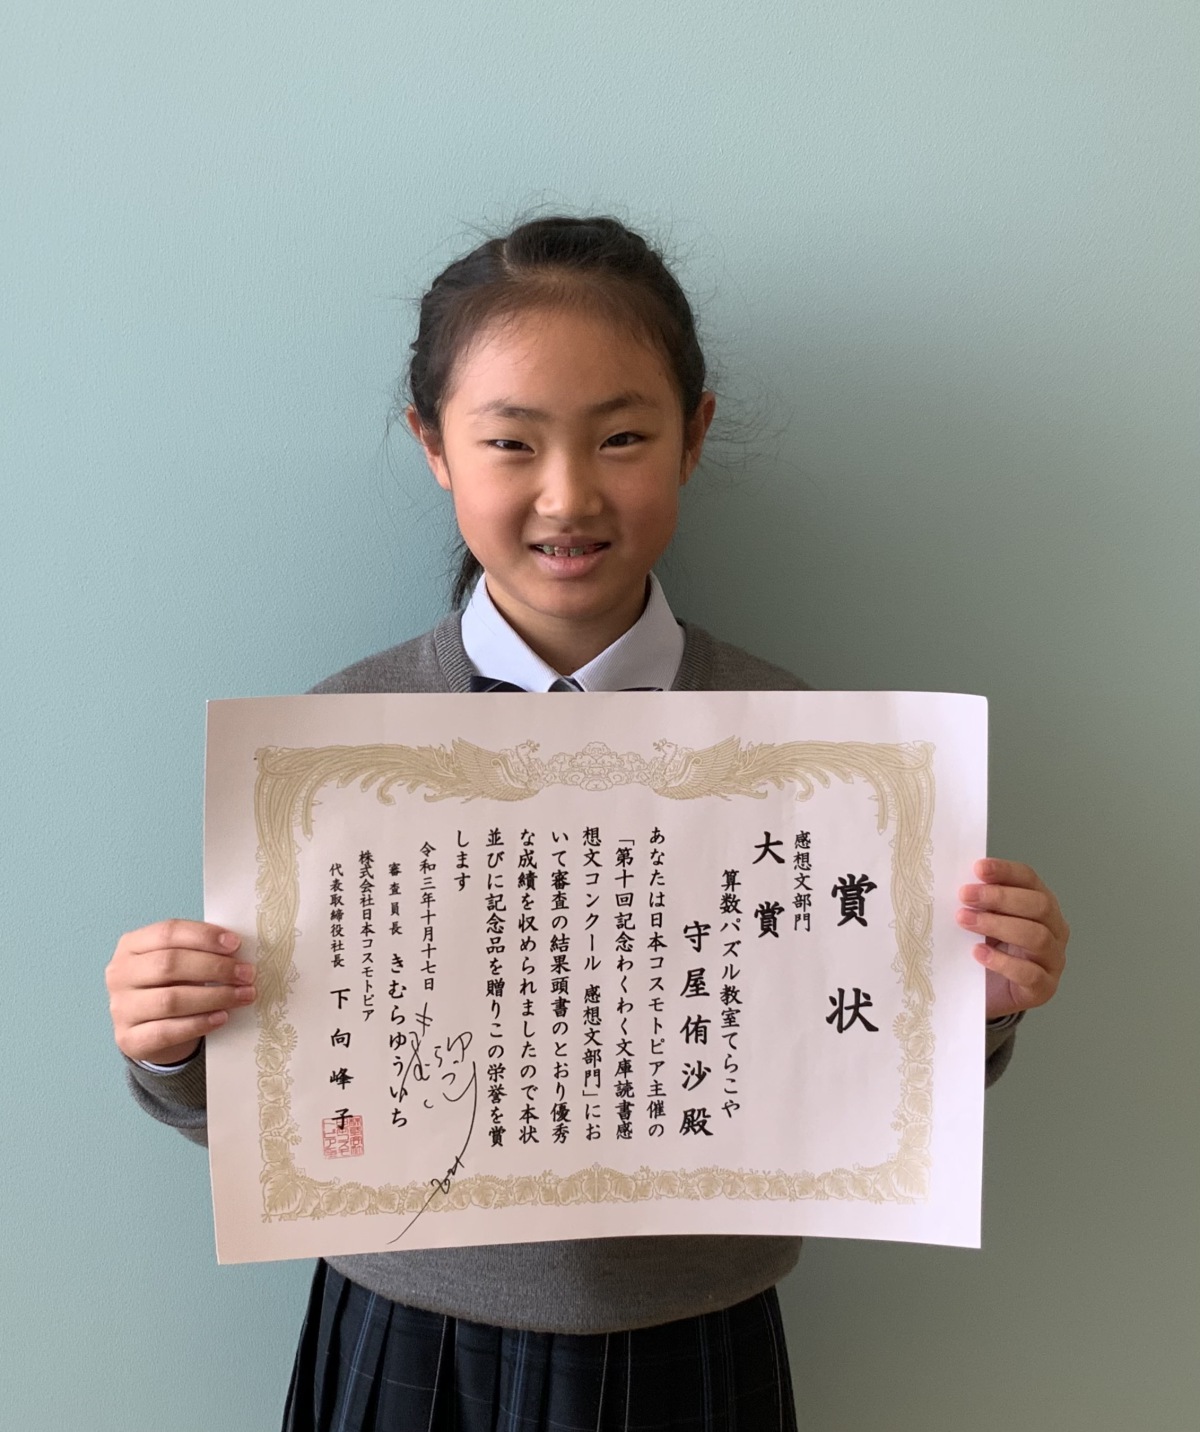 賞状
感想文部門
大賞
算数パズル教室てらこや
守屋侑沙殿
あなたは日本コスモトピア主催の
「第十回記念わくわく文庫読書感
想文コンクール 感想文部門」にお
いて審査の結果頭書のとおり優秀
な成績を収められましたので本状
並びに記念品を贈りこの栄誉を賞
します
令和三年十月十七日
審査員長 きむらゆういち
株式会社日本コスモトピア
代表取締役社長 下向峰子
2021